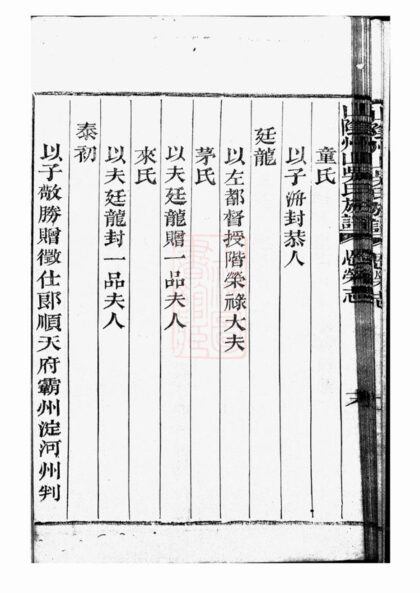 山陰州山吳氏族譜
恩榮志
童氏
以子封恭人
廷龍
以左都督授階榮祿大夫
茅氏
以夫廷龍贈一品夫人
來氏
以夫廷龍封一品夫人
泰初
以子敞勝贈徵仕郎順天府霸州淀河州判